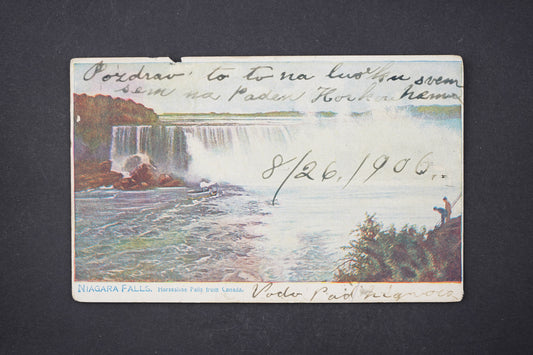 Pozdrav to to na luothu svem
sem na Paden
8/26, 1906.
NIAGARA FALLS. Horseshoe Falls from Canada.
Vodo Pad